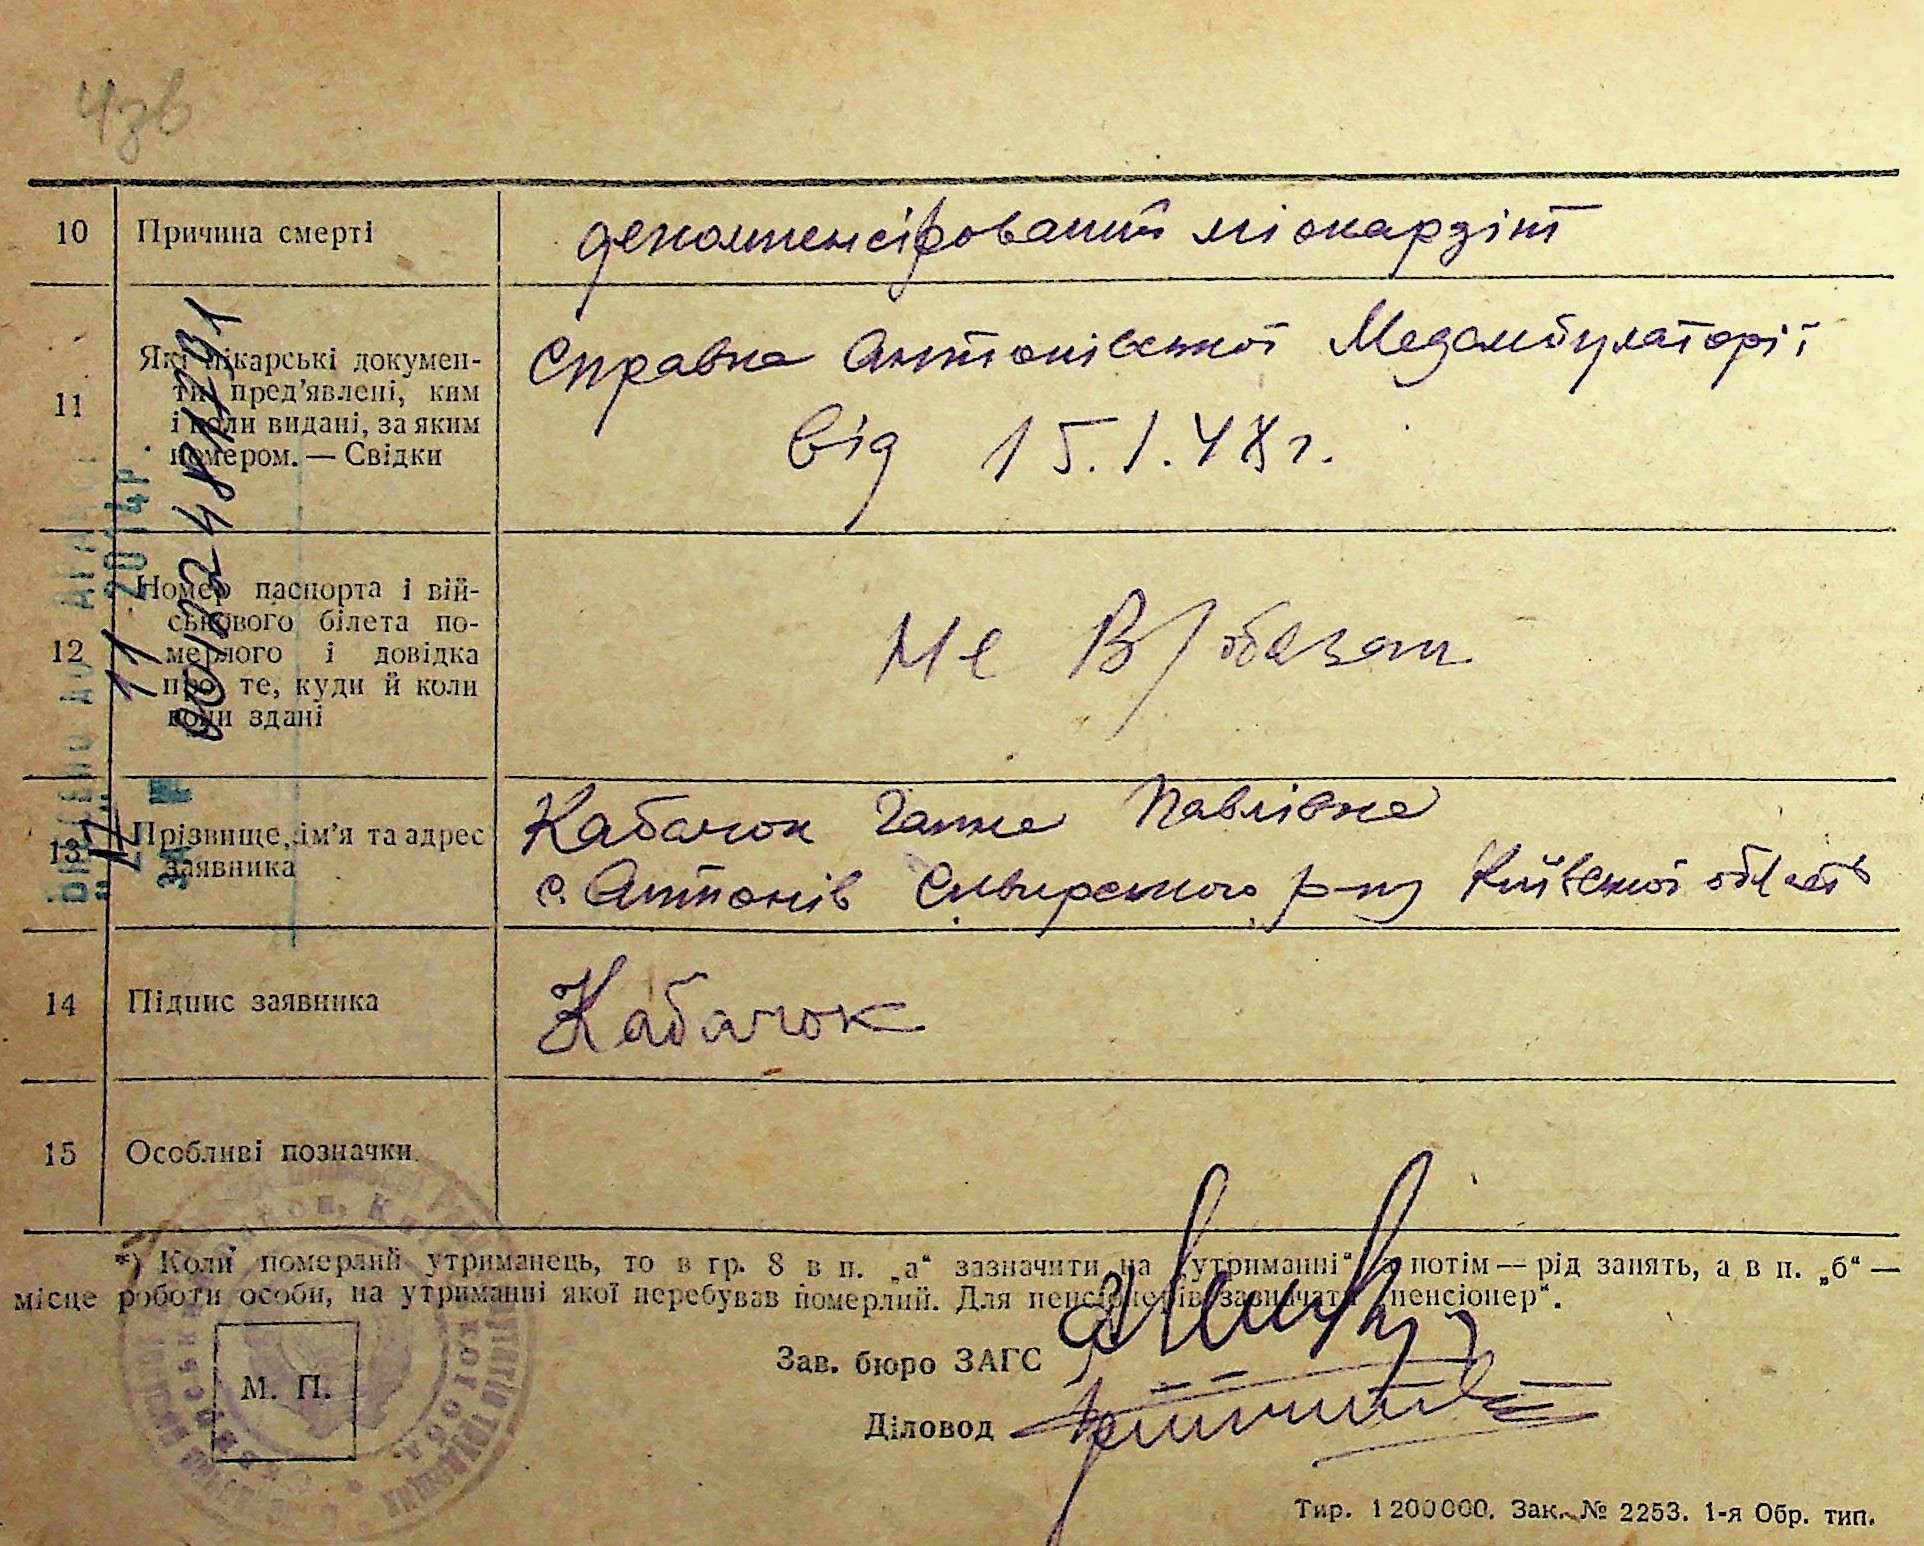 43в
10 Причина смерті декомпенсірований міокардіт
11 Які лікарські докумен-
ти пред'явлені, ким
і коли видані, за яким
номером. — Свідки
Справка Антонівської Медамбулаторії
від 15.1.48 г.
12 Номер паспорта і вій-
ськового білета по-
мерлого і довідка
про те, куди й коли
вони здані
Не В/обязан
13 Прізвище, ім'я та адрес
заявника
Кабачок Ганна Павлівна
с. Антонів Сквирского р-ну Київської область
14 Підпис заявника Кабачок
15 Особливі позначки
*) Коли померлий утриманець, то в гр. 8 в п. „а“ зазначити „на утриманні“ а потім — рід занять, а в п. „б“ —
місце роботи особи, на утриманні якої перебував померлий. Для пенсіонерів зазначати „пенсіонер“.
М. П.
Зав. бюро ЗАГС
Діловод
Тир. 1200000. Зак. № 2253. 1-я Обр. тип.
17 11 2014р.
ЗА №